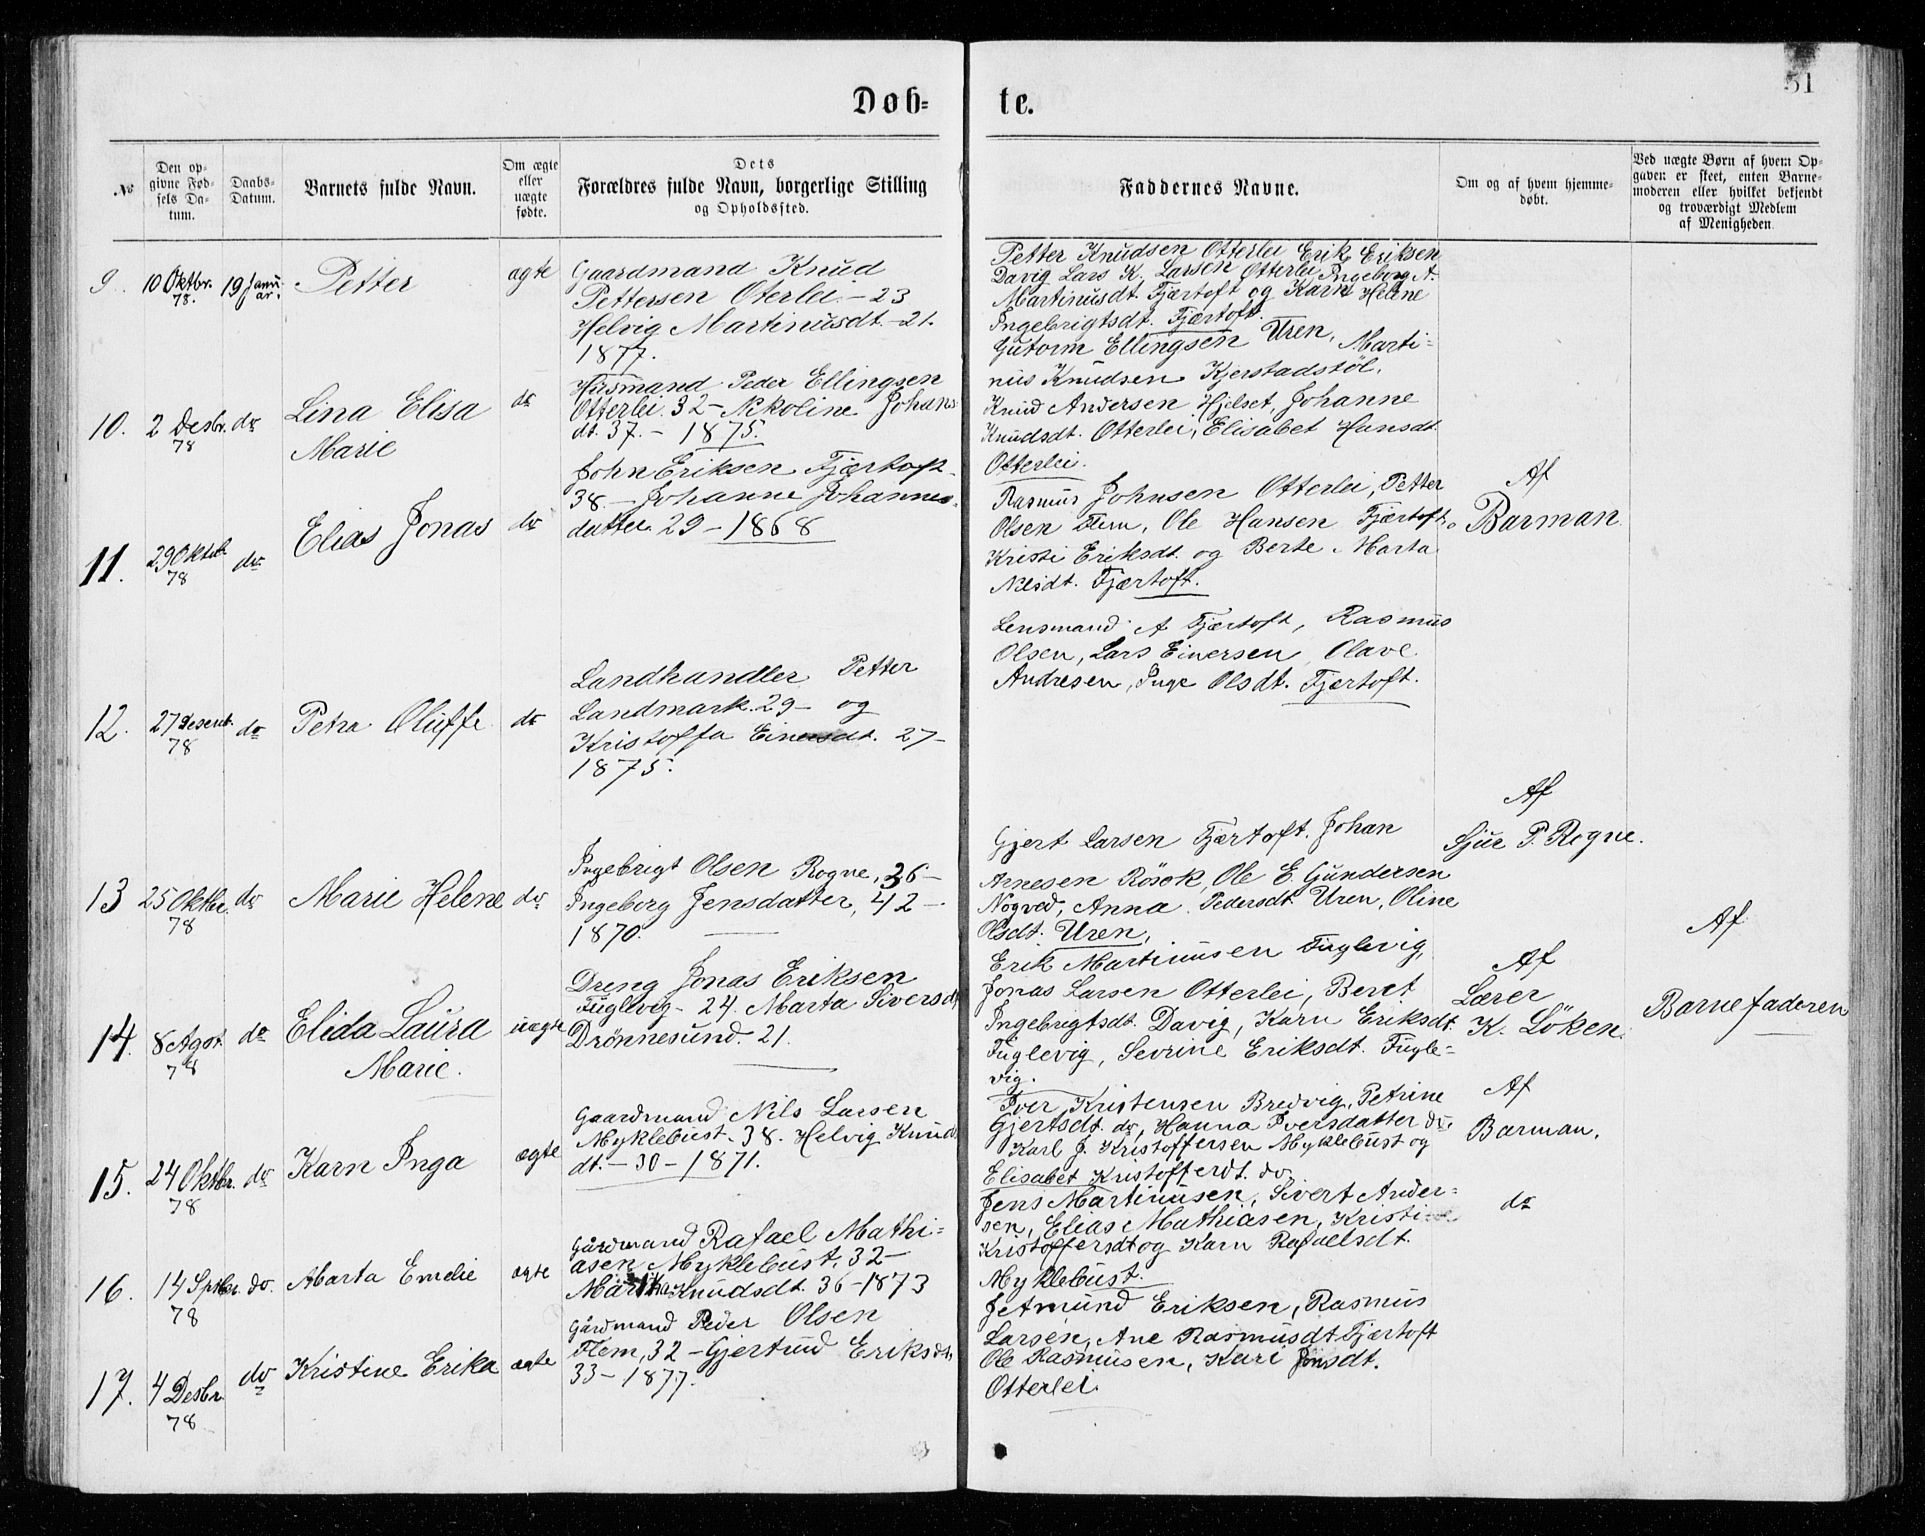 Döb-
te.
51
№
Den op-
givne Fød-
sels Da-
tum.
Daabs-
Datum.
Barnets fulde Navn.
Om ægte
eller
uægte
fødte.
Dets
Forældres fulde Navn, borgerlige Stilling
og Opholdssted.
Faddernes Navne.
Om og af hvem hjemme-
døbt.
Ved uægte Børn af hvem Op-
gaven er skeet, enten Barne-
moderen eller hvilket bekjendt
og troværdigt Medlem
af Menigheden.
9. 10 Oktbr. 78. 19 Janu-
ar. Petter ægte
Gaardmand Knud
Pettersen Oterlei - 23
Helvig Martinusdt - 21.
1877.
Petter Knudsen Otterlei Erik Eriksen
Davig Lars K. Larsen Otterlei Ingeborg A.
Martinusdt. Fjærtoft og Karn Helene
Ingebrigtsdt. Fjærtoft.
10. 2 Desbr. 78 do Lina Elisa
Marie
do
Husmand Peder Ellingsen
Otterlei. 32 - Nikoline Johans
dt. 37. - 1875.
Gutorm Ellingsen Uren, Marti-
nus Knudsen Kjerstadstöl,
Knud Andersen Hjelset, Johanne
Knudsdt. Otterlei, Elisabet Hansdt.
Otterlei.
11. 29 Oktbr. 78 do Elias Jonas do
John Eriksen Fjærtoft
38 - Johanne Johannes-
datter 29 - 1868
Rasmus Johnsen Otterlei, Petter
Olsen Flem, Ole Hansen Fjærtoft,
Kristi Eriksdt. og Berte Marta
Nilsdt. Fjærtoft.
Af
Barman
12. 27 Desemb. 78 do Petra Oluffe do
Landhandler Petter
Landmark. 29 - og
Kristoffa Einersdt. 27 -
1875.
Lensmand A Fjærtoft, Rasmus
Olsen, Lars Einersen, Olave
Andresen, Inge Olsdt. Fjærtoft.
13 25 Oktbr. 78 do Marie Helene do
Ingebrigt Olsen Rogne, 36 -
Ingeborg Jensdatter, 42 -
1870.
Gjert Larsen Fjærtoft. Johan
Arnesen Rösok, Ole E. Gundersen
Nogved, Anna Pedersdt Uren, Oline
Olsdt. Uren,
Af
Sjur P. Rogne.
14. 8 Agst. 78 do Elida Laura
Marie.
uægte
Dreng Jonas Eriksen
Fuglevig - 24. Marta Siversdt
Drönnesund. 21.
Erik Martinusen Fuglevig,
Jonas Larsen Otterlei, Beret
Ingebrigtsdt. Davig, Karn Eriksdt.
Fuglevig, Sevrine Eriksdt. Fugle-
vig.
Af
Lærer
K. Löken.
Af
Barnefaderen
15. 24 Oktbr. 78 do Karn Inga ægte
Gaardmand Nils Larsen
Myklebust - 38. Helvig Knuds
dt. - 30 - 1871.
Iver Kristensen Bredvig, Petrine
Gjertsdt. do, Hanna Iversdatter do,
Karl J. Kristoffersen Myklebust og
Elisabet Kristofferdt. do
Af
Barman.
16. 14 Sptbr. 78 do. Marta Emelie ægte
Gårdmand Rafael Mathi-
asen Myklebust. 32 -
Marta Knudsdt. 36 - 1873
Jens Martinusen, Sivert Ander-
sen, Elias Mathiasen, Kristine
Kristoffersdt og Karn Rafaelsdt.
Myklebust.
do
17. 4 Desbr 78 do Kristine Erika ægte
Gårdmand Peder Olsen
Flem, 32 - Gjertrud Eriksdt,
33 - 1877.
Jetmund Eriksen, Rasmus
Larsen, Ane Rasmusdt Fjærtoft
Ole Rasmusen, Kari Jonsdt.
Otterlei.